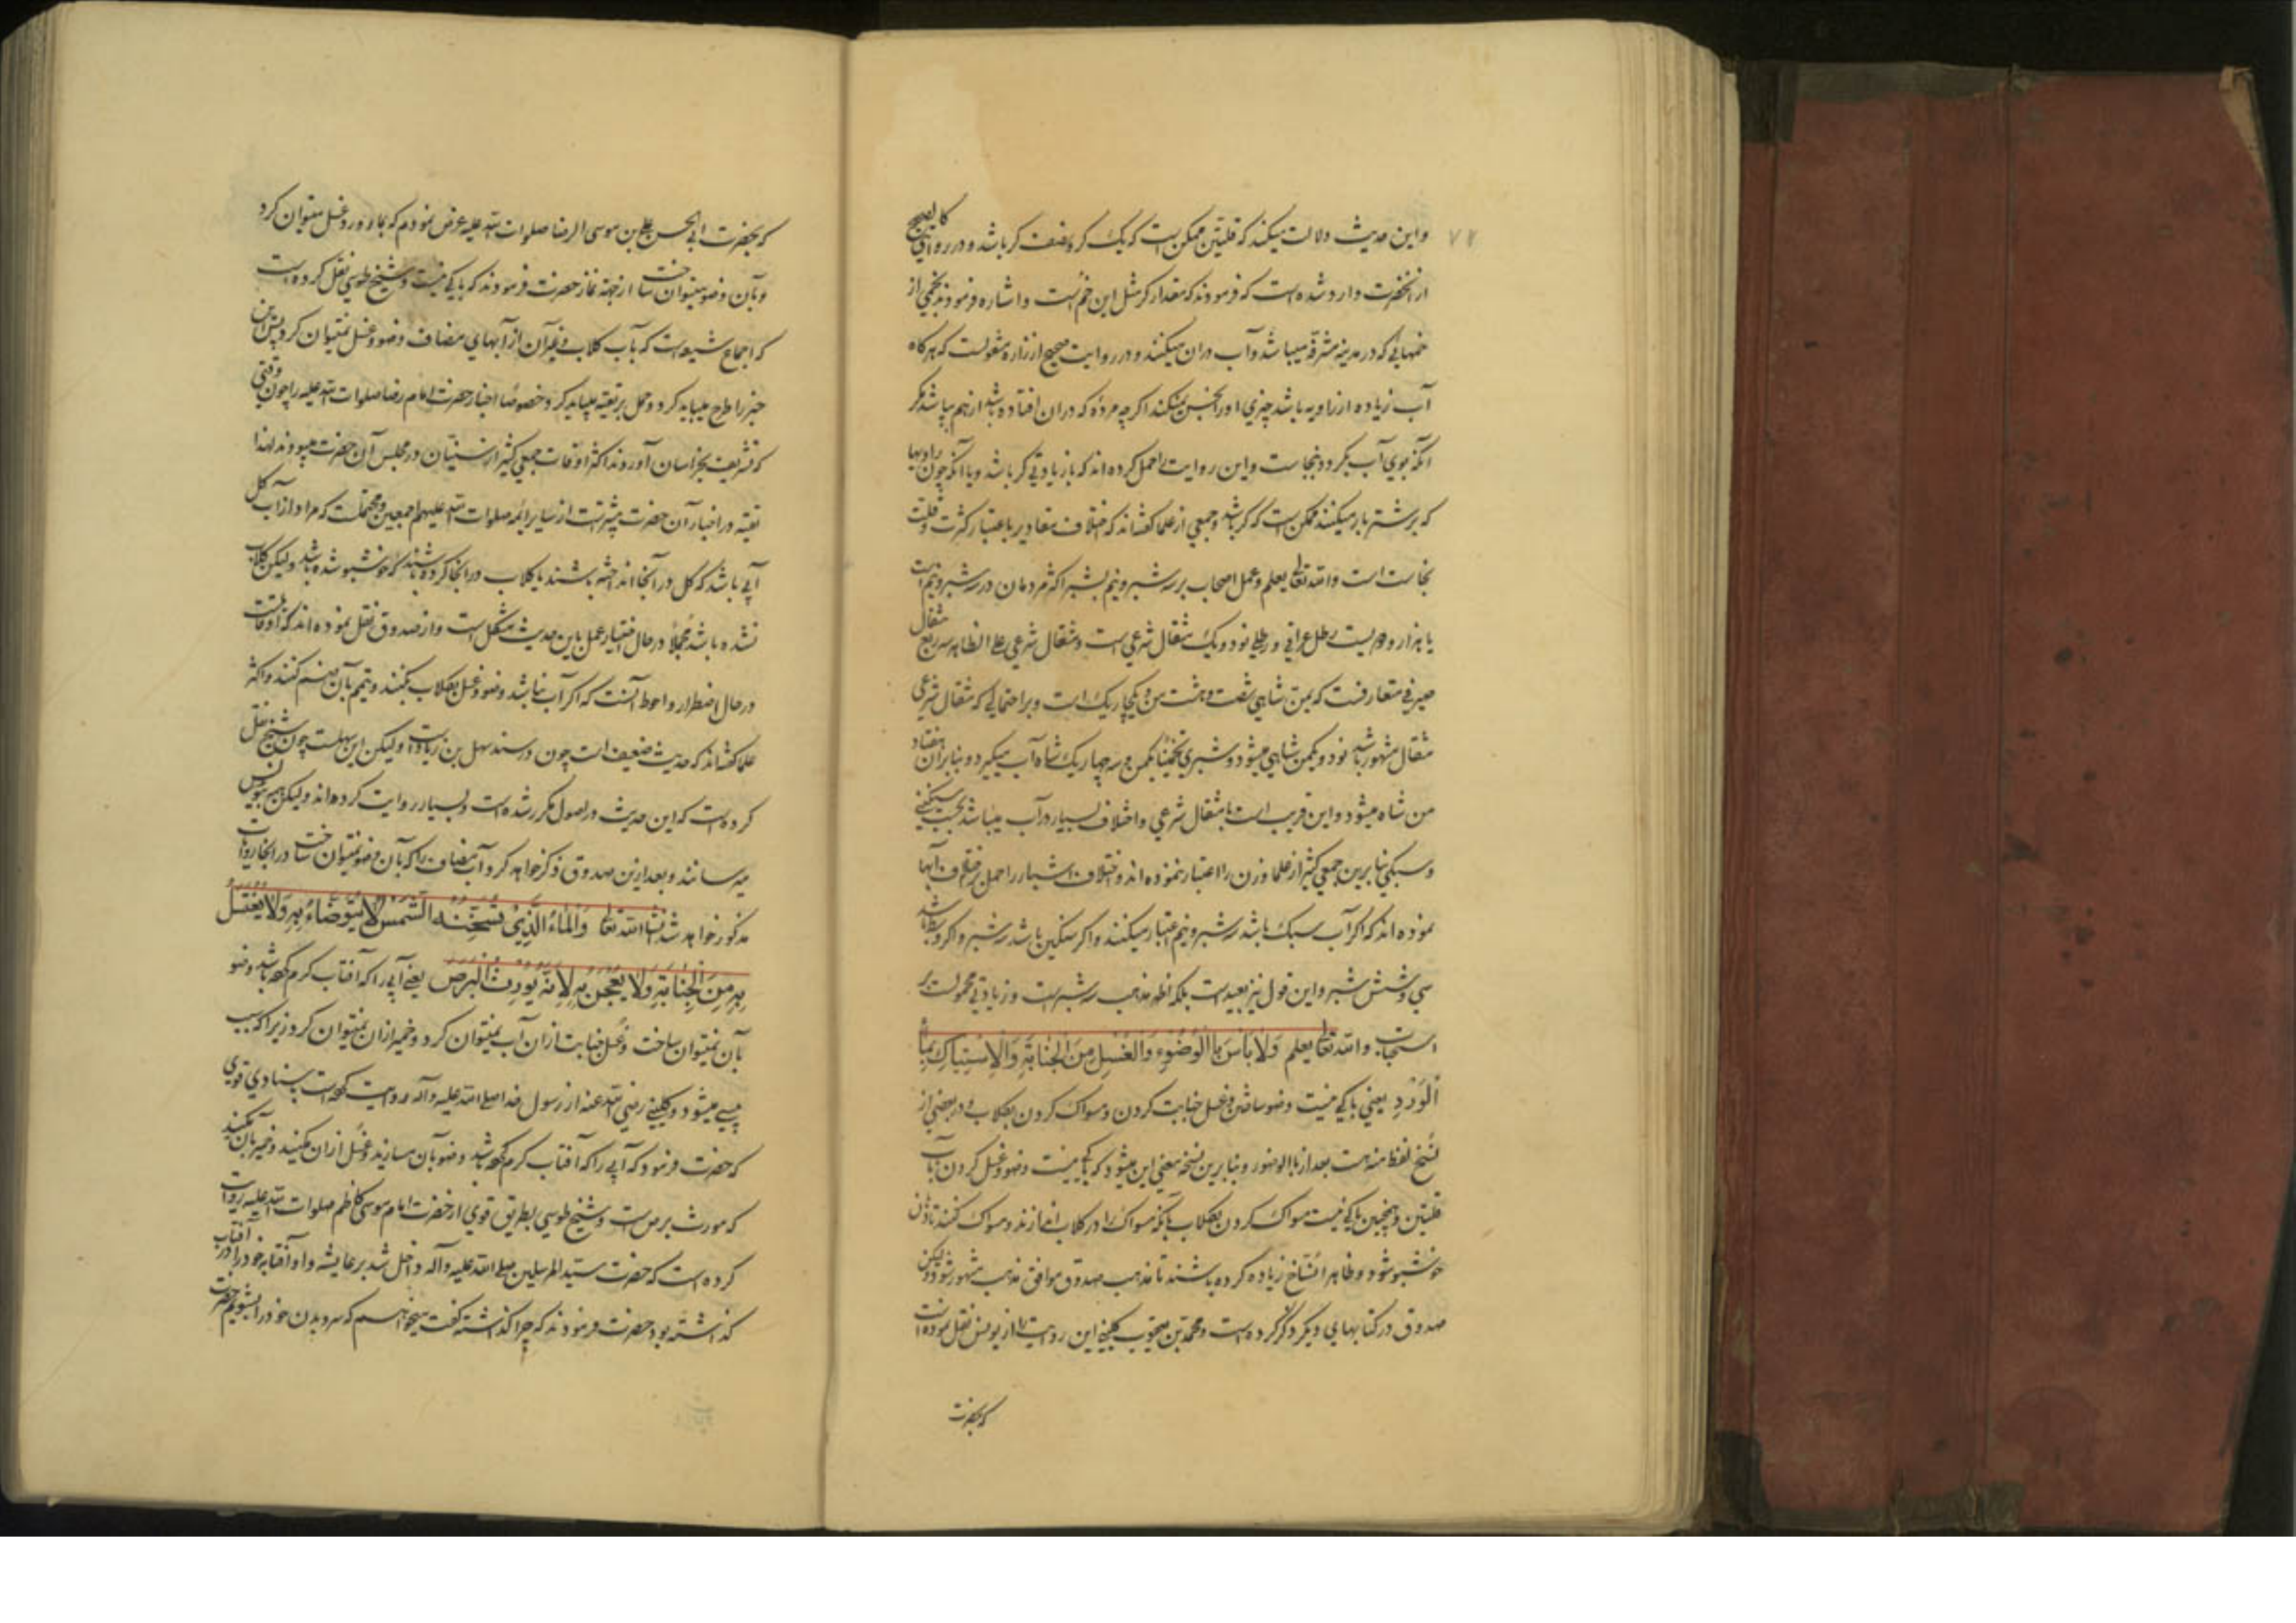 ۷۲
واین حدیث دلالت میکند که قلتین ممکن است که یک کر و نصف کر باشد و در روایتی کالصحیح
از آنحضرت وارد شده است که فرمودند که مقدار کر مثل این خم است و اشاره فرمودند بخمی از
خمهایی که در مدینه مشرفه میباشد و آب در ان میکنند و در روایت صحیح از زراره منقولست که هرگاه
آب زیاده از زاویه باشد چیزی او را نجس نمیکند اگر چه مرده که در ان افتاده باشد از هم بپاشد مگر
آنکه بوی آب بگردد بنجاست و این روایت را حمل کرده اند که با زیادتی کر باشد و یا آنکه چون راویها
که بر شتر بار میکنند ممکن است که کر باشد و جمعی از علما گفته اند که اختلاف مقادیر باعتبار کثرت و قلت
نجاست است والله تعالی یعلم و عمل اصحاب بر سه شبر و نیم بشبر اکثر مردمان در سه شبر و نیم است
یا هزار و دویست رطل عراقی و رطلی نود و یک مثقال شرعی است و مثقال شرعی علی الظاهر سه ربع مثقال
صیرفی متعارفست که بمن شاهی شصت و هشت من و یکچاریک است و بر احتمالی که مثقال شرعی
مثقال مشهور باشد نود و یکمن شاهی میشود و شبری تخمینا یکمن و سه چهاریک شاه آب میگیرد و بنابر ان هفتاد
من شاه میشود و این قریب است با مثقال شرعی و اختلاف بسیار در آب میباشد بحسب سنگینی
و سبکی بنابرین جمعی کثیر از علما وزن را اعتبار ننموده اند و اختلاف اشبار را حمل بر اختلاف آبها
نموده اند که اگر آب سبک باشد سه شبر و نیم اعتبار میکنند و اگر سنگین باشد سه شبر و اگر وسط باشد
سی و شش شبر و این قول نیز بعید است بلکه اظهر مذهب سه شبر است و زیادتی محمولست بر
استحباب والله تعالی یعلم وَلَا بَأسَ بِالْوُضُوءِ وَالْغُسْلِ مِنَ الْجَنَابَةِ وَالْاِسْتِيَاكِ بِمَاءِ
الْوَرْدِ یعنی باکی نیست وضو ساختن و غسل جنابت کردن و مسواک کردن بگلاب و در بعضی از
نسخ لفظ منه هست بعد از بالوضوء و بنابرین نسخه معنی این میشود که باکی نیست وضو و غسل کردن بآب
قلتین و همچنین باکی نیست مسواک کردن بگلاب بآنکه مسواک را در گلاب اندازند و مسواک کنند تا دهن
خوشبو شود و ظاهرا نساخ زیاده کرده باشند تا مذهب صدوق موافق مذهب مشهور شود و لیکن
صدوق در کتابهای دیگر ذکر کرده است و محمد بن یعقوب کلینی این روایت را از یونس نقل نموده است
که بحضرت
که بحضرت ابی الحسن علی بن موسی الرضا صلوات الله علیه عرض نمودم که بماء ورد غسل میتوان کرد
و بآن وضو میتوان ساخت از جهة نماز حضرت فرمودند که باکی نیست و شیخ طوسی نقل کرده است
که اجماع شیعه است که بآب گلاب و غیر آن از آبهای مضاف وضو و غسل نمیتوان کرد پس این
خبر را طرح میباید کرد و حمل بر تقیه میباید کرد و خصوصا اخبار حضرت امام رضا صلوات الله علیه را چون وقتی
که تشریف بخراسان آوردند اکثر اوقات جمعی کثیر از سنیان در مجلس آن حضرت میبودند لهذا
تقیه در اخبار آن حضرت بیشتر است از سایر ائمه صلوات الله علیهم اجمعین و محتملست که مراد از آب گل
آبی باشد که گل در آنجا انداخته باشند یا گلاب در انجا کرده باشند که خوشبو شده باشد و لیکن گلاب
نشده باشد مجملا در حال اختیار عمل باین حدیث مشکل است و از صدوق نقل نموده اند که او قائلست
در حال اضطرار و احوط آنست که اگر آب نباشد وضو و غسل بگلاب بکنند و تیمم بآن ضم کنند و اکثر
علما گفته اند که حدیث ضعیف است چون در سند سهل بن زیاد است و لیکن این سهلست چون شیخ نقل
کرده است که این حدیث در اصول مکرر شده است و بسیار روایت کرده اند و لیکن همه بیونس
میرسانند و بعد ازین صدوق ذکر خواهد کرد آب مضاف را که بآن وضو نمیتوان ساخت در آنجا روایات
مذکور خواهد شد انشاالله تعالی وَالْمَاءُ الَّذِي تُسَخِّنُهُ الشَّمْسُ لَا يُتَوَضَّأُ بِهِ وَلَا يُغْتَسَلُ
بِهِ مِنَ الْجَنَابَةِ وَلَا يُعْجَنُ بِهِ لِأَنَّهُ يُورِثُ الْبَرَصَ یعنی آبی را که آفتاب گرم کرده باشد وضو
بآن نمیتوان ساخت و غسل جنابت از ان آب نمیتوان کرد و خمیر از ان نمیتوان کرد زیرا که سبب
پیسی میشود و کلینی رضی الله عنه از رسول خدا صلی الله علیه و آله روایت کرده است بسند قوی
که حضرت فرمود که آبی را که آفتاب گرم کرده باشد وضو بآن مسازید و غسل از ان مکنید و خمیر بآن مکنید
که مورث برص است و شیخ طوسی بطریق قوی از حضرت امام موسی کاظم صلوات الله علیه روایت
کرده است که حضرت سید المرسلین صلی الله علیه و آله داخل شد بر عایشه و او آفتابه خود را در آفتاب
گذاشته بود حضرت فرمودند که چرا گذاشته گفت میخواهم که سر و بدن خود را بشویم حضرت